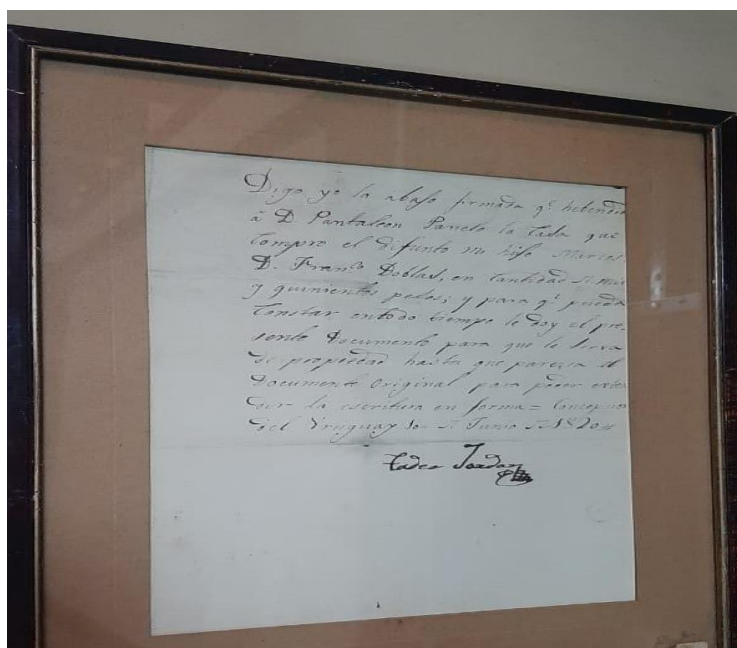 Digo yo la abajo firmada q.e hebendido
à D Pantaleon Panelo la Casa que
compro el difunto mi hijo Marcos
D. Fran.co Doblas, en Cantidad
y quinientos pesos; y para q.e pueda
Constar entodo tiempo le doy el pre
sente Documento para que le sirva
de propiedad hasta que paresca el
Documento Original para poder exten
der la escritura en forma = Concepcion
del Uruguay Junio
Tadea Jordan